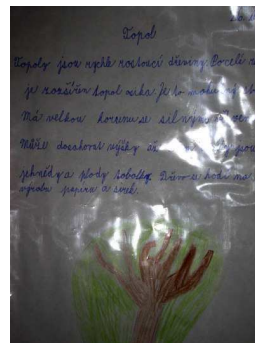 Topol
Topoly jsou rychle rostoucí dřeviny. Po celé
je rozšířen topol osika. Je to
Má velkou korunu se silnými
Může dosahovat výšky až
jehnědy a plody tobolky. Dřevo se hodí na
výrobu papíru a sirek.